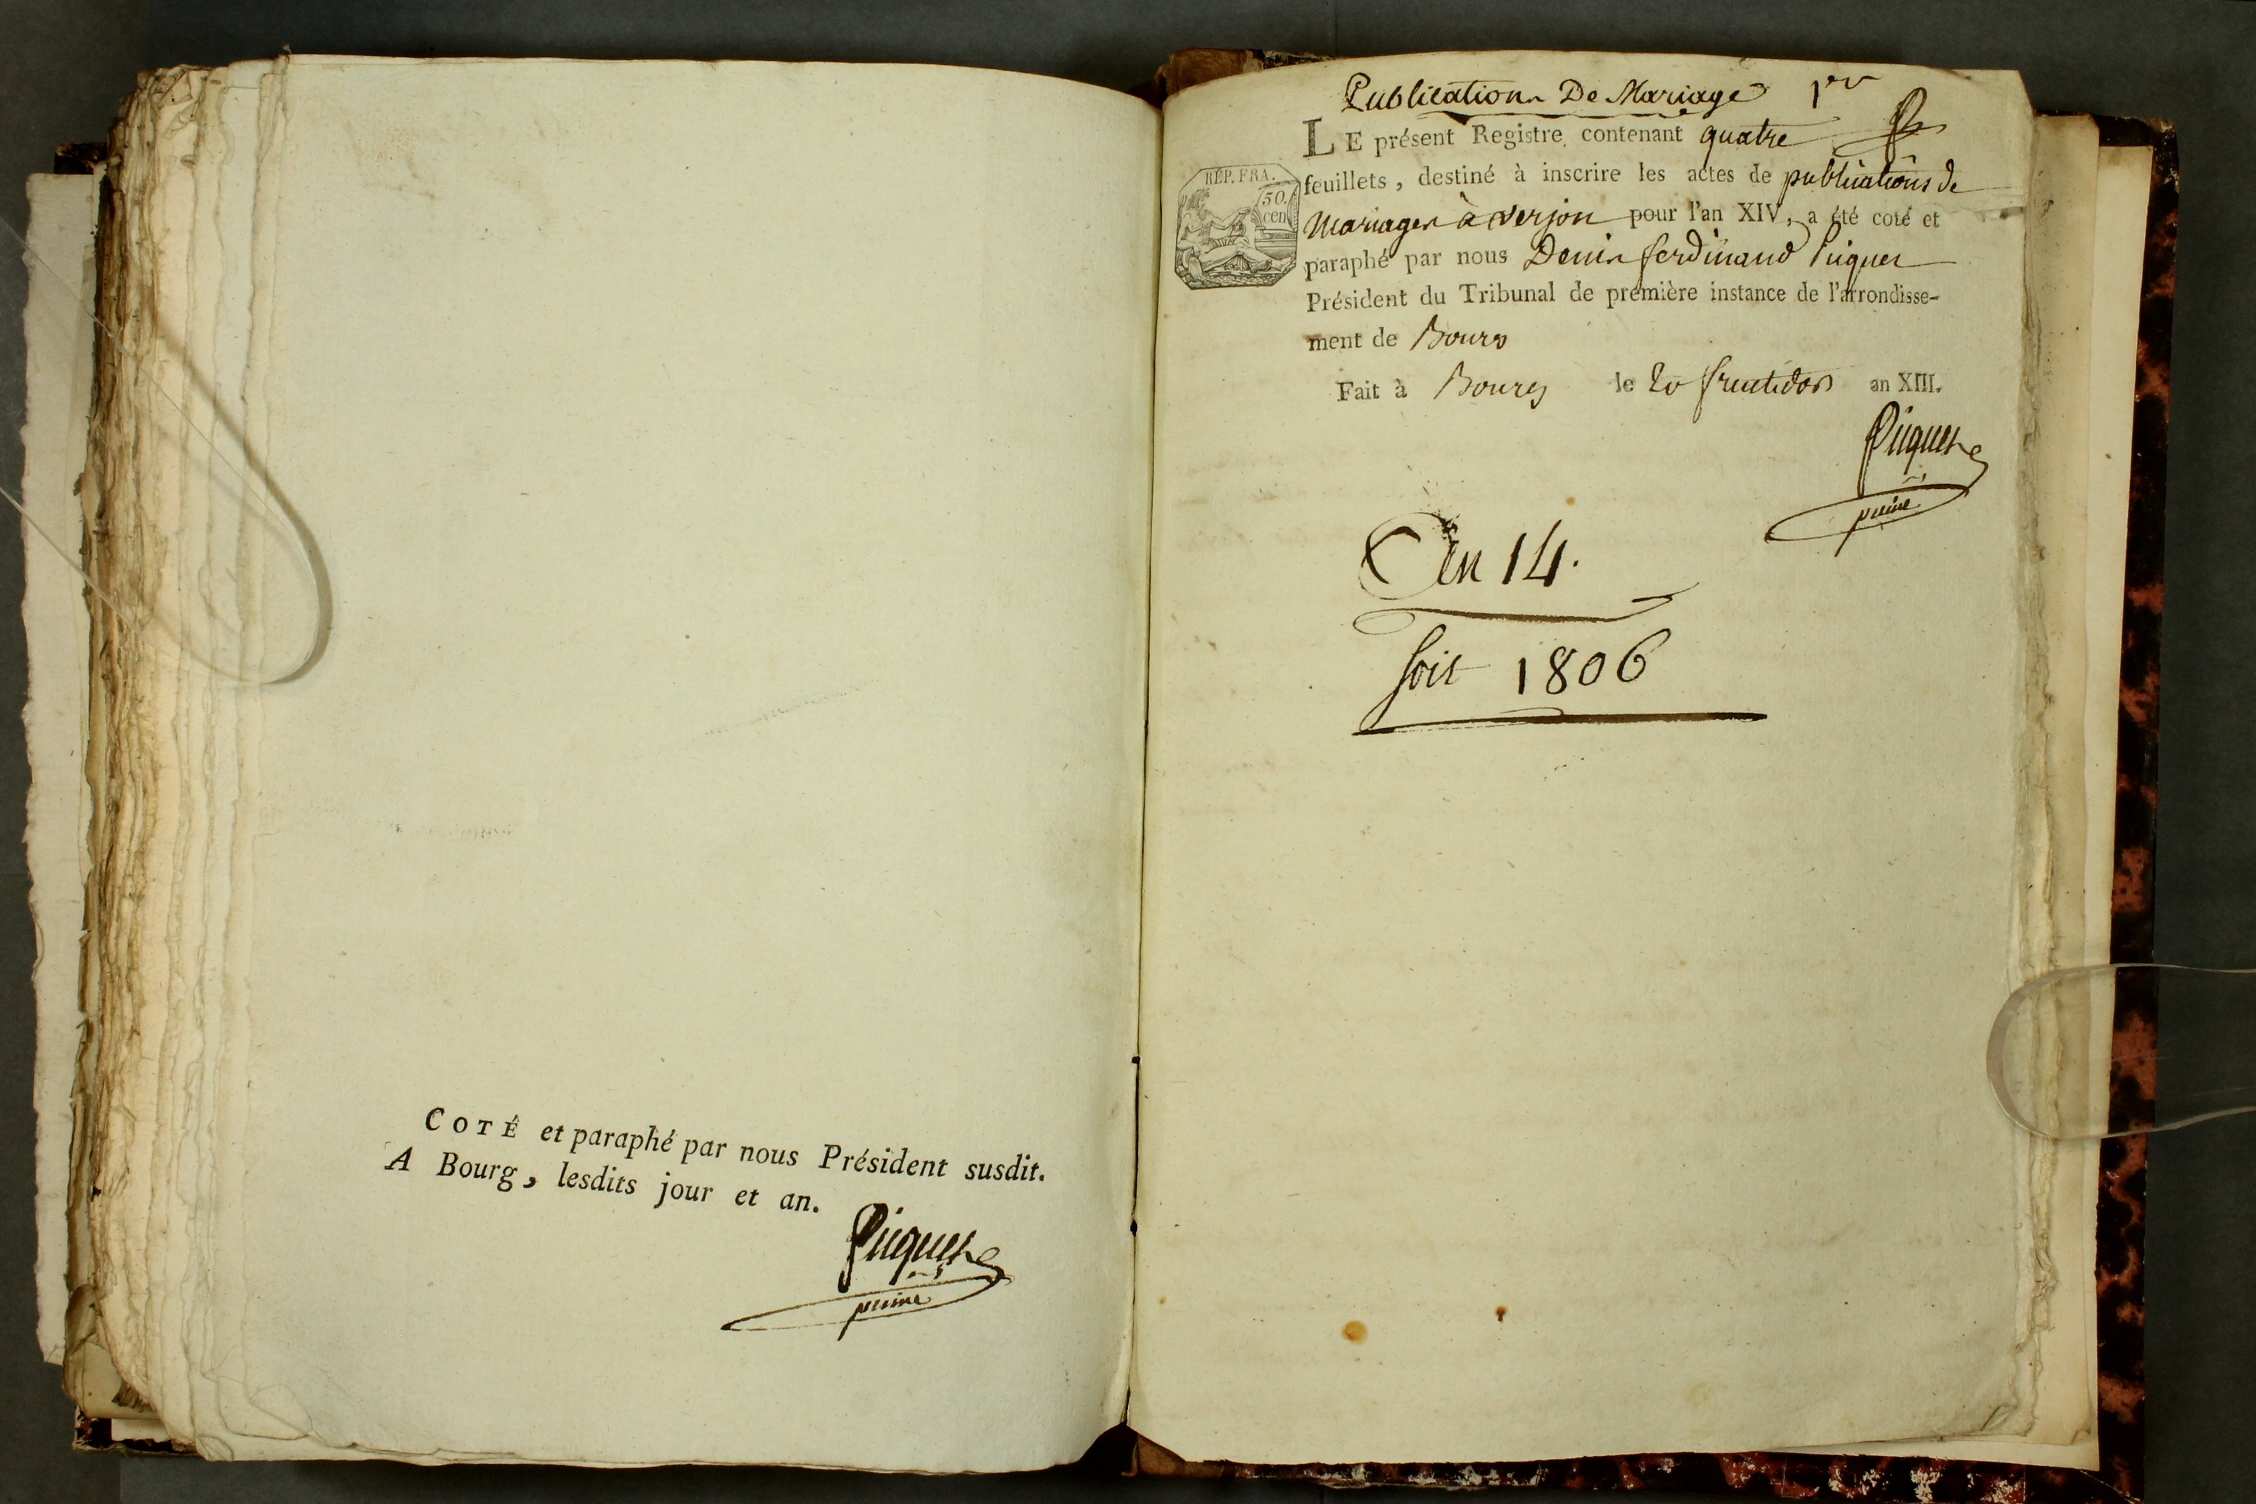 COTÉ et paraphé par nous Président susdit.
A Bourg, lesdits jour et an.
Picquet
Publications De Mariage 1er
LE présent Registre, contenant quatre
REP. FRA.
50.
cen
feuillets, destiné à inscrire les actes de publications de
Mariages à Verjon pour l'an XIV, a été coté et
paraphé par nous Denis ferdinand Picquet
Président du Tribunal de première instance de l'arrondisse-
ment de Bourg
Fait à Bourg le 20 fructidor an XIII.
Picquet
An 14.
Soit 1806